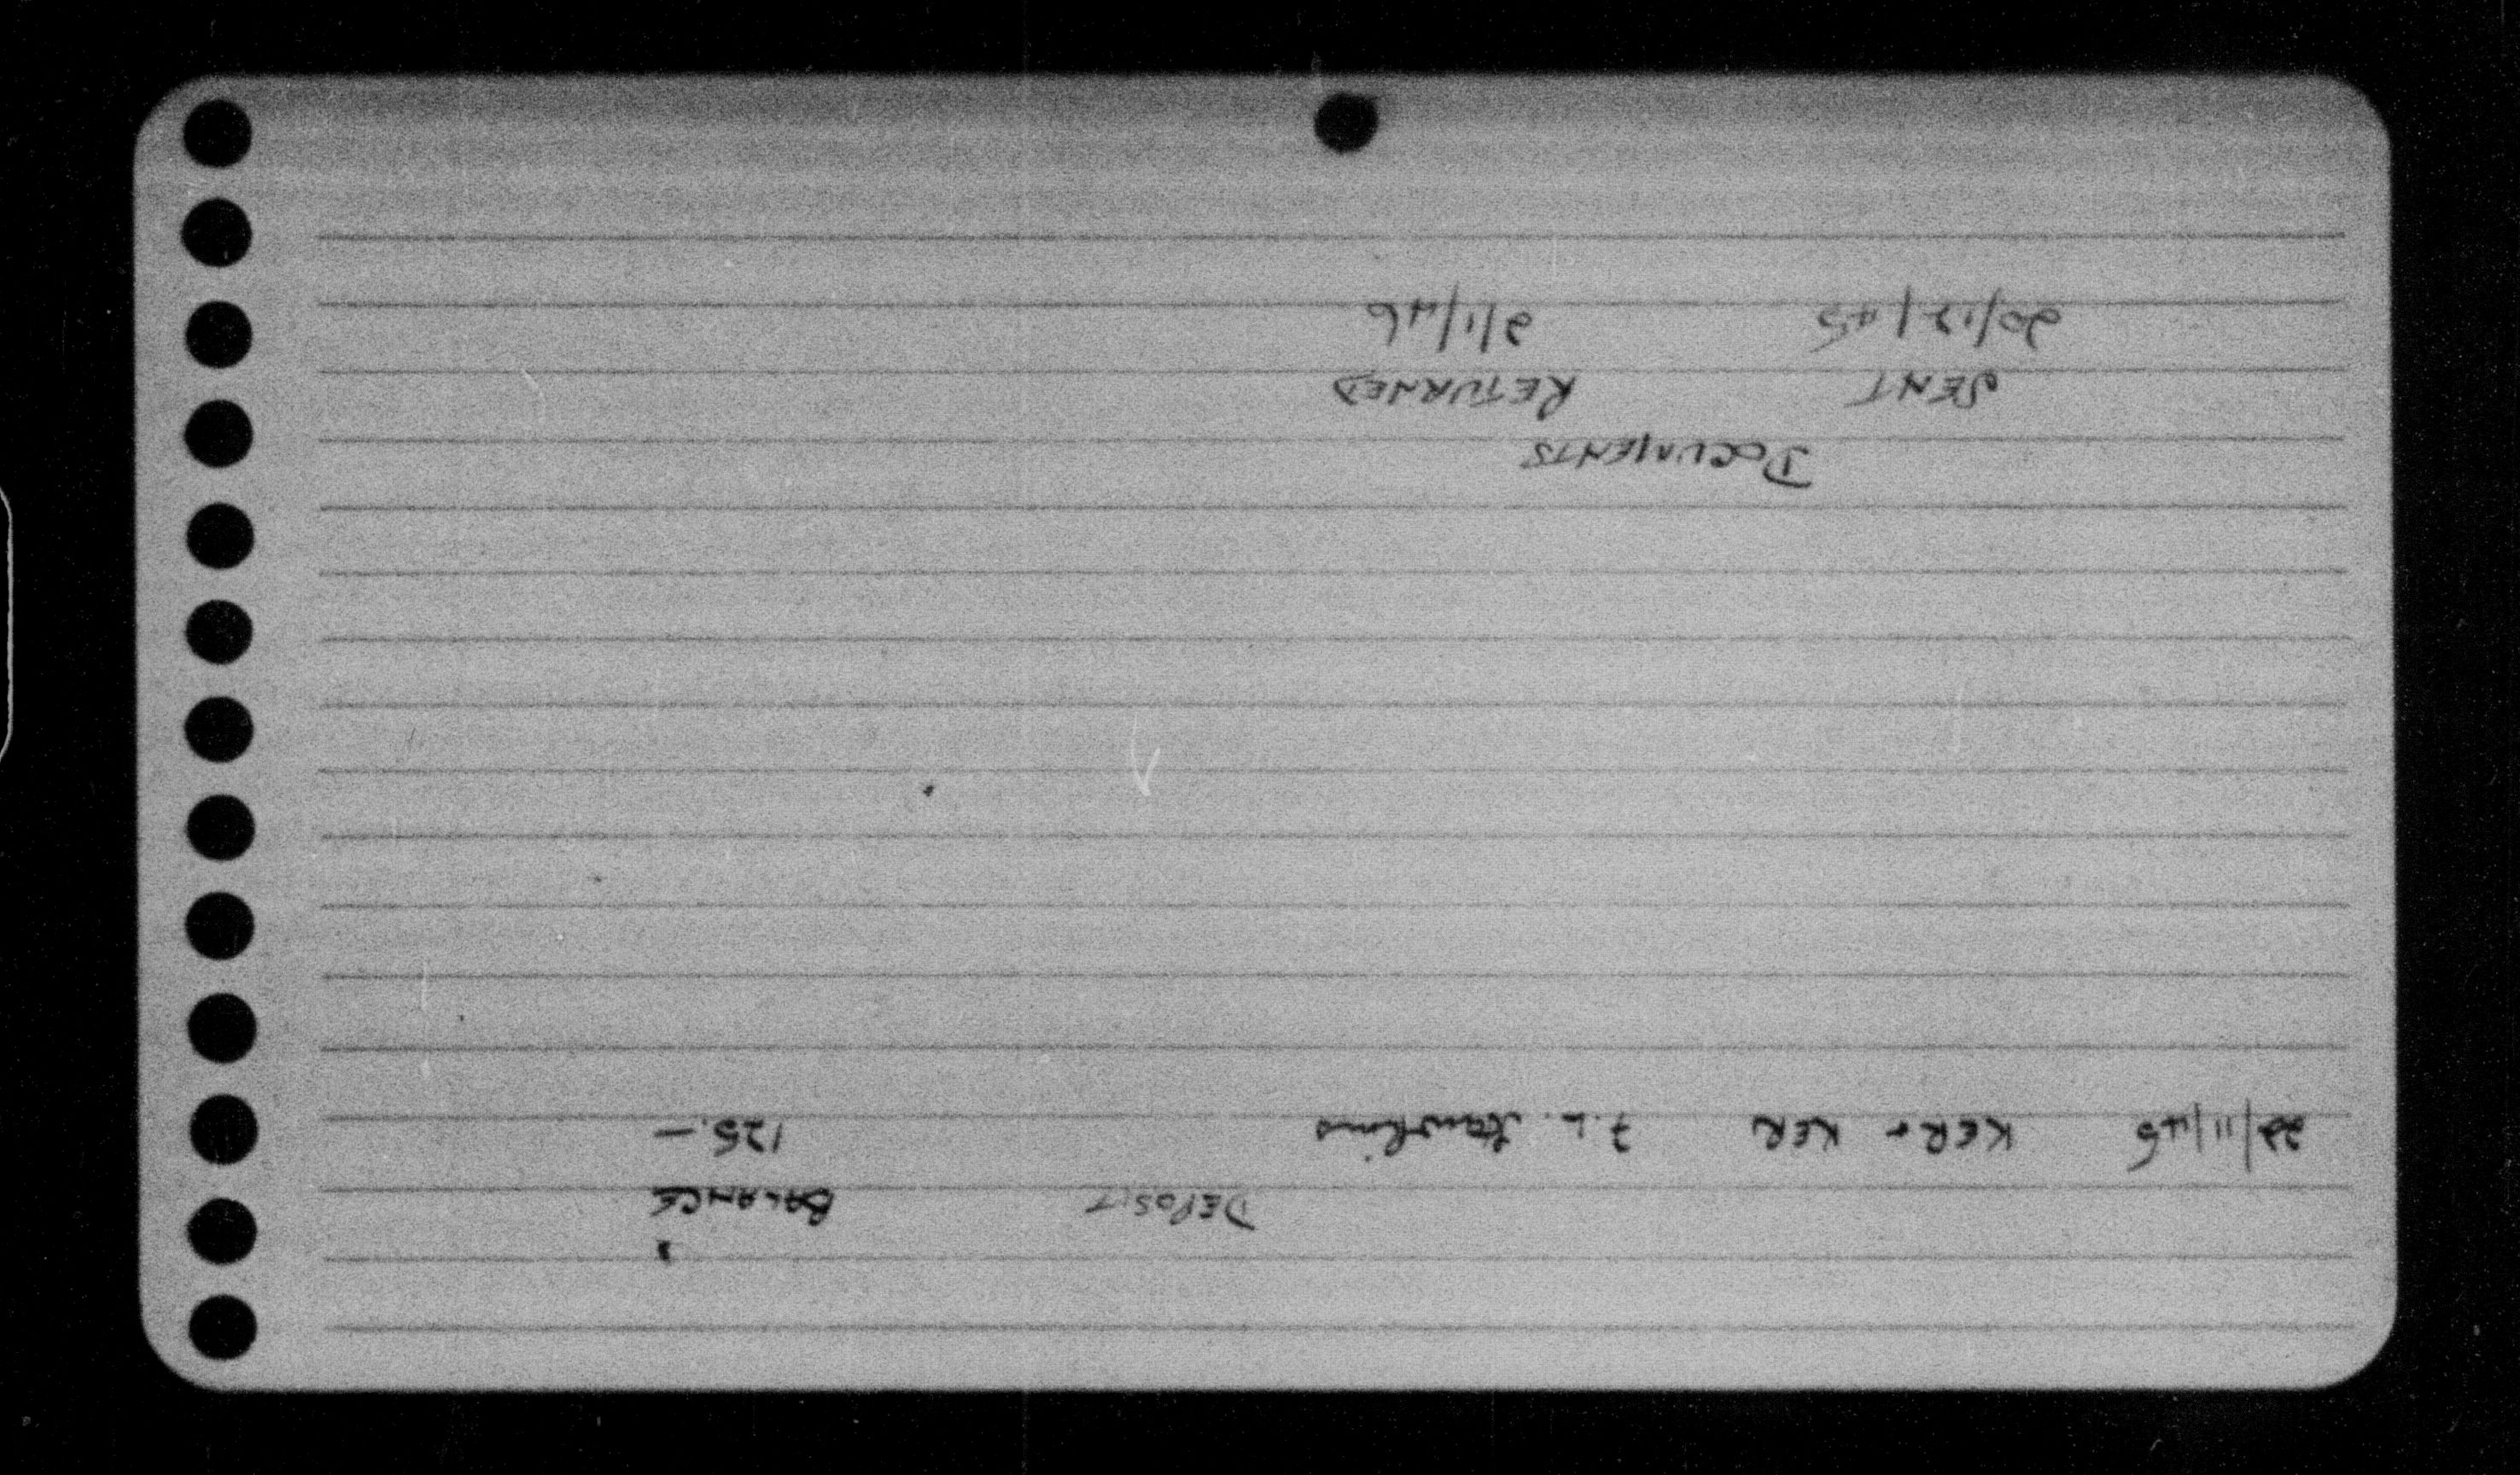 DEPOSIT BALANCE
22/11/45 KER & KER F.L. Hawkins 125.—
DOCUMENTS
SENT RETURNED
20/12/45 2/1/46